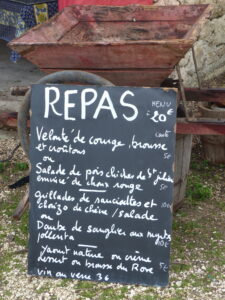 REPAS
MENU
20€
Velouté de courge, brousse
et croûtons
carte
5€
ou
Salade de pois chiches de St Julien
émincé de choux rouge
5€
Grillades de saucisses et
chorizo de chèvre / salade
10€
ou
Daube de sanglier aux
polenta
10€
Yaourt nature ou crème
dessert ou brousse du Rove
5€
vin au verre 3€